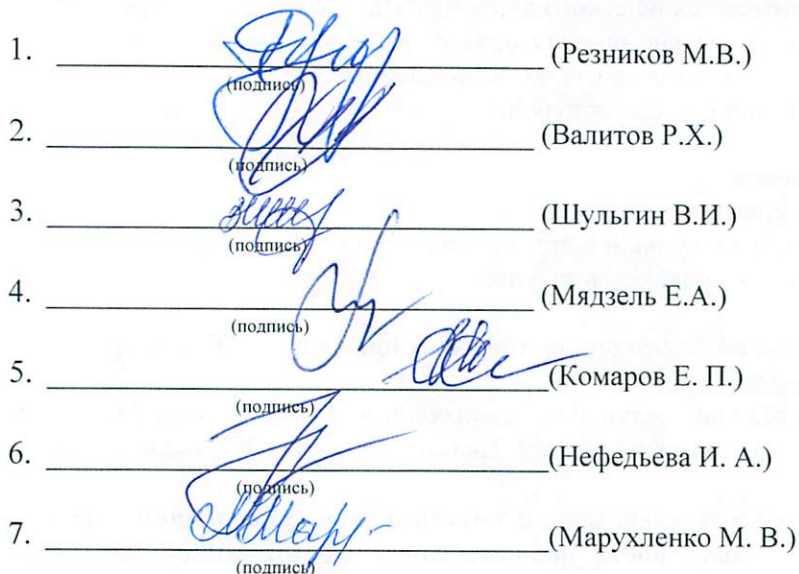 1. (Резников М.В.)
(подпись)
2. (Валитов Р.Х.)
(подпись)
3. (Шульгин В.И.)
(подпись)
4. (Мядзель Е.А.)
(подпись)
5. (Комаров Е. П.)
(подпись)
6. (Нефедьева И. А.)
(подпись)
7. (Марухленко М. В.)
(подпись)